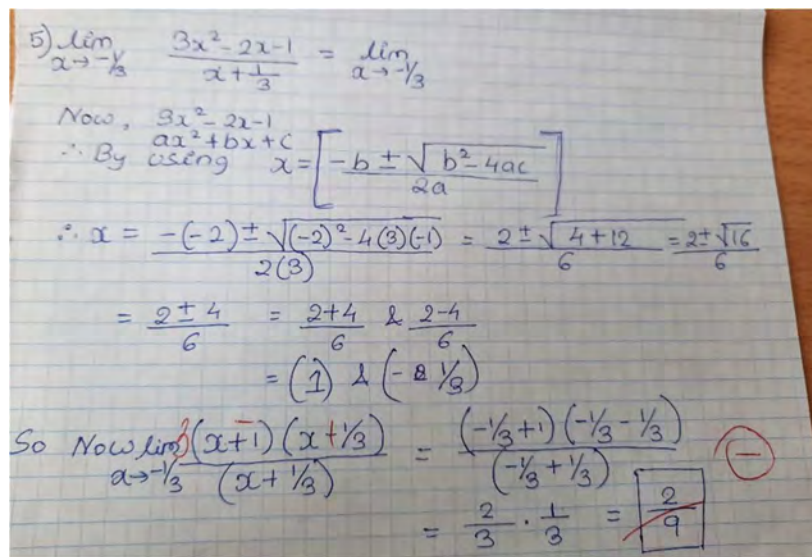 5) lim x→-1/3 3x²-2x-1 / x+1/3 = lim x→-1/3
Now, 3x²-2x-1
ax²+bx+c
∴ By using x = [-b ± √b²-4ac / 2a]
∴ x = -(-2) ± √(-2)²-4(3)(-1) / 2(3) = 2 ± √4+12 / 6 = 2 ± √16 / 6
= 2 ± 4 / 6 = 2+4 / 6 & 2-4 / 6
= (1) & (-1/3)
So Now lim x→-1/3 3(x-1)(x+1/3) / (x+1/3) = (-1/3+1)(-1/3-1/3) / (-1/3+1/3) −
= 2/3 · 1/3 = 2/9